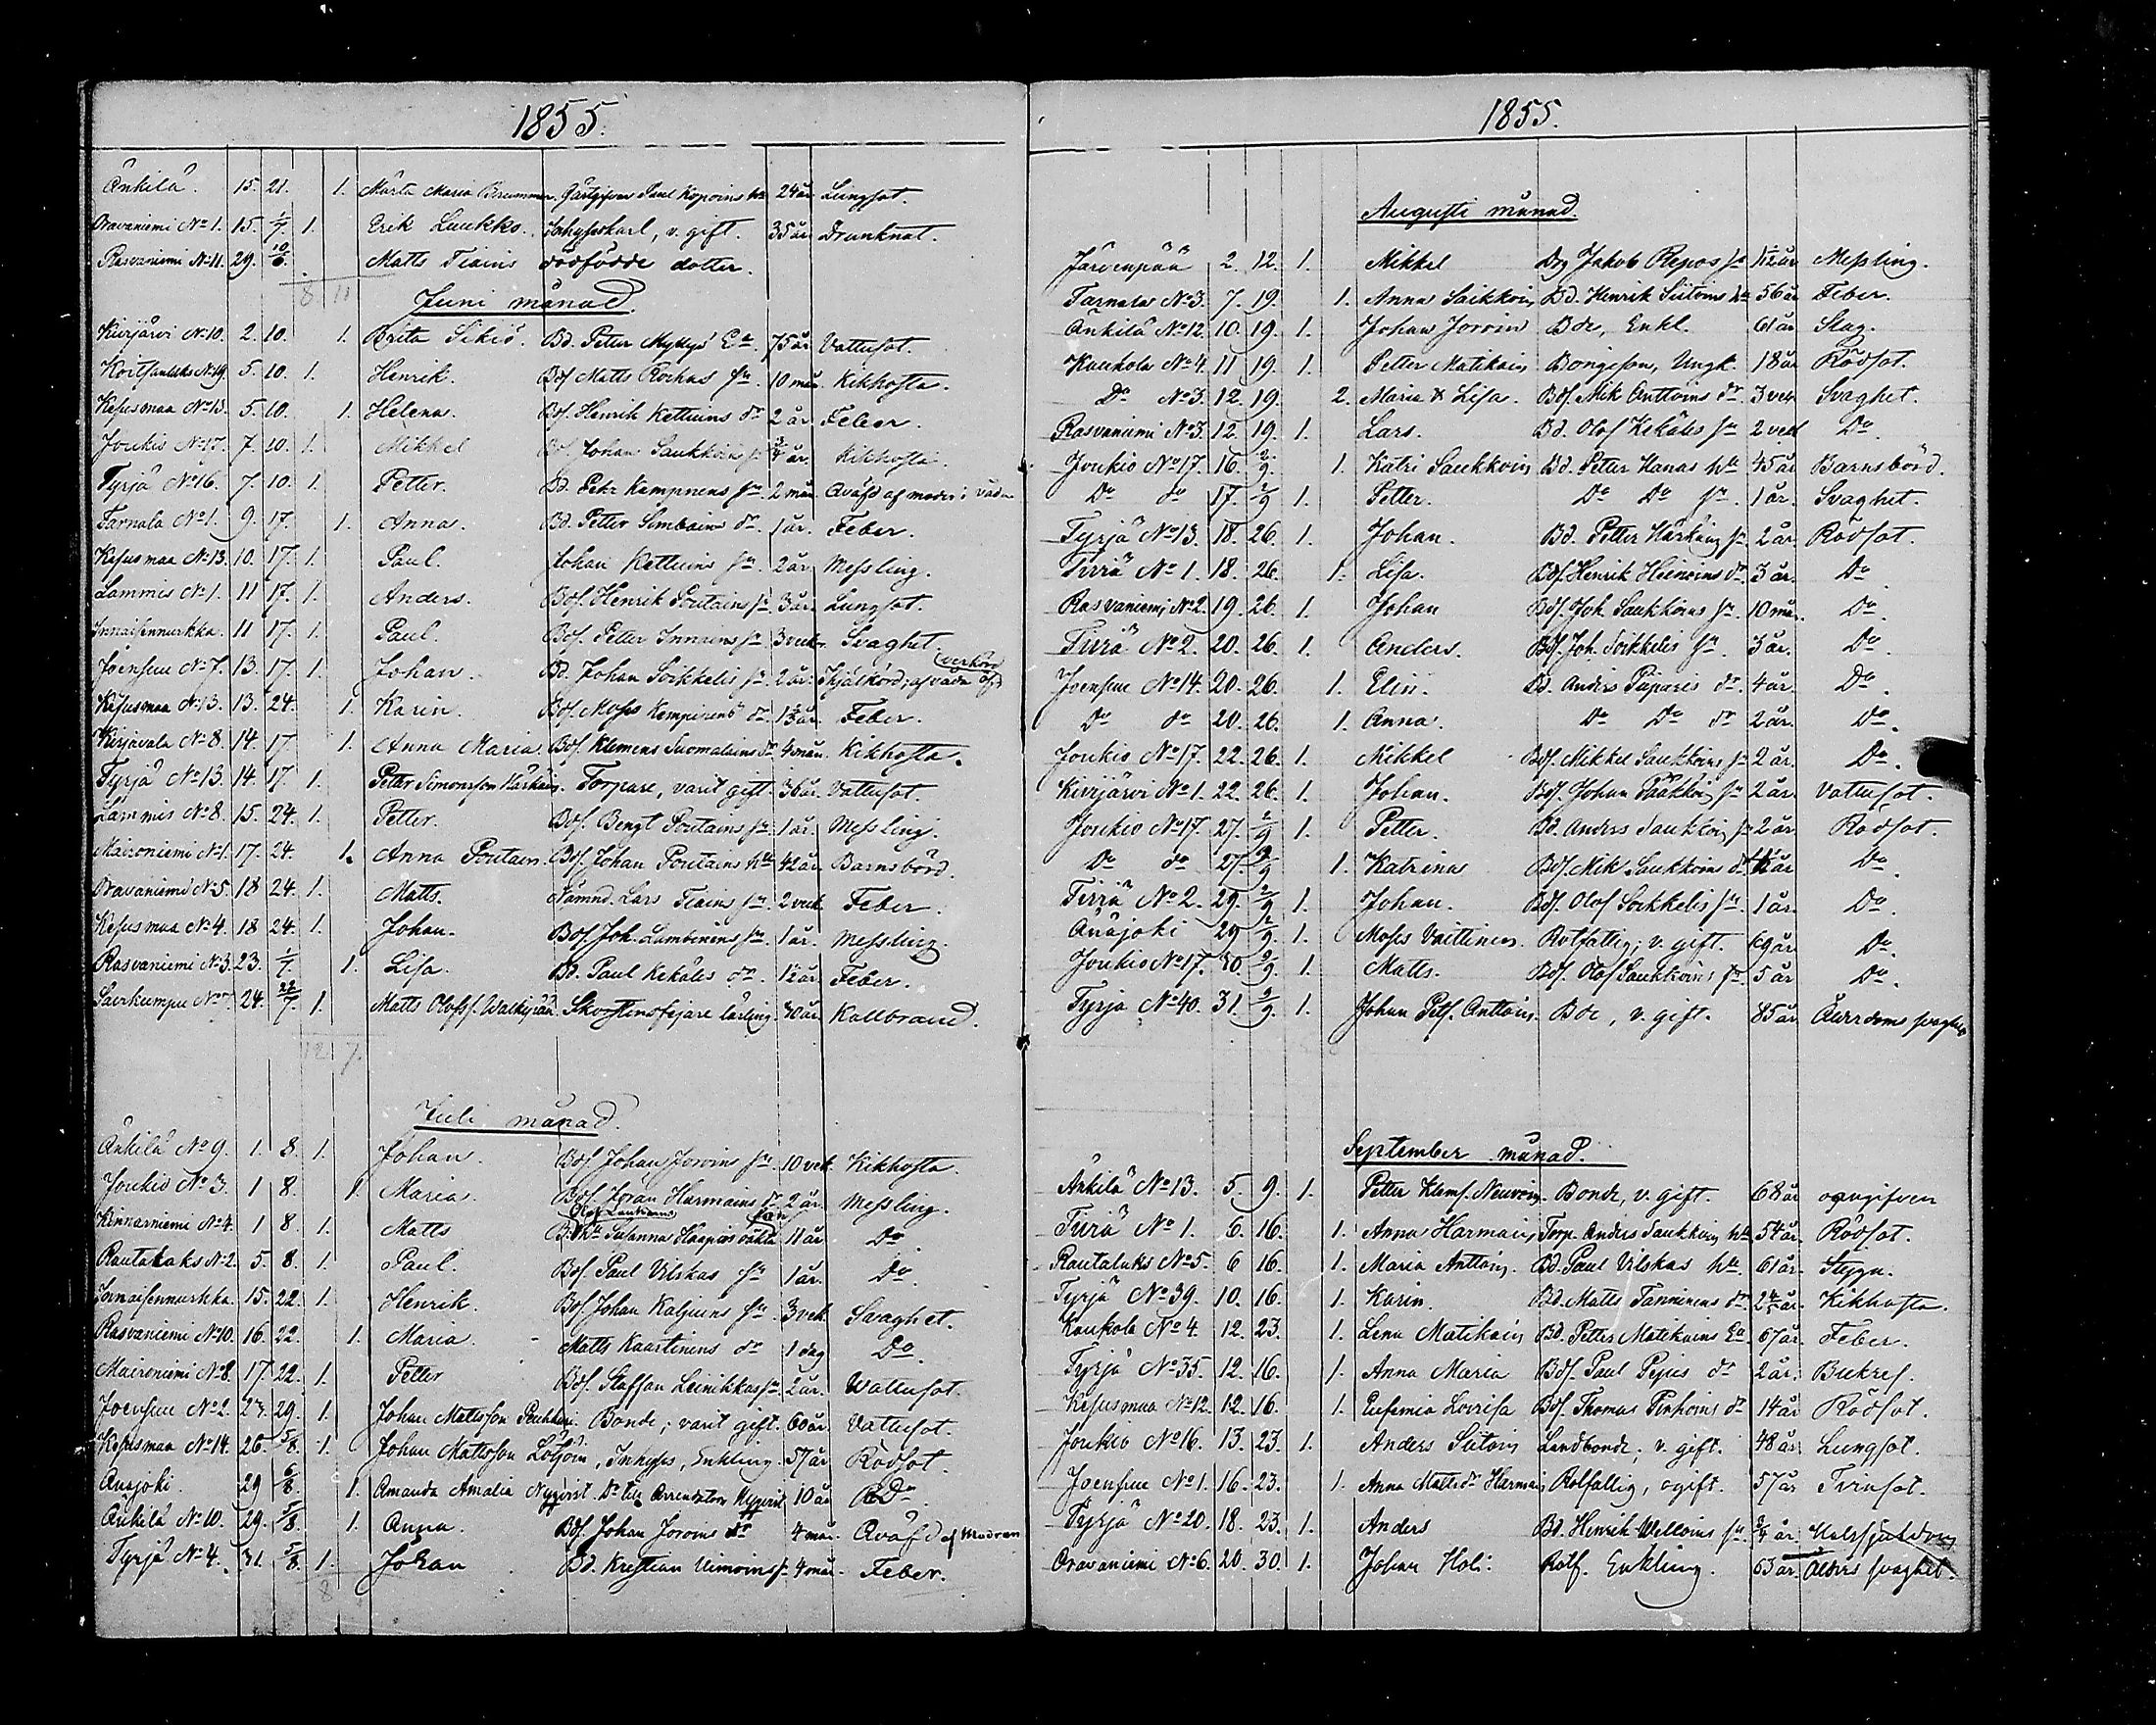 1855.
Änkilä. 15. 21. 1. Märta Maria Brummer. Gästgifvar Paul Kopoins hu 24 år Lungsot.
Oravaniemi No 1. 15. 1/7 1. Erik Luukko. Inhyseskarl, v. gift. 35 år Drunknat.
Rasvaniemi No 11. 29. 10/6. Matts Tiains dödfödde dotter.
8 11
Juni månad.
Kivijärvi No 10. 2. 10. 1. Brita Sikiö. Bd. Peter Myllys Ea. 75 år Vattusot.
Koitsanlaks No 19. 5. 10. 1. Henrik. Bds Matts Rochas sn. 10 mån. Kikhosta.
Kesusmaa No 13. 5. 10. 1. Helena. Bds. Henrik Kettuins dr 2 år Feber.
Joukio No 17. 7. 10. 1. Mikkel Bds Johan Saukkoins sn 3/4 år. Kikhosta.
Tyrjä No 16. 7. 10. 1. Petter. Bd. Petr Kempinens sn. 2 mån. Qväfd af moder i våda
Tarnala No 1. 9. 17. 1. Anna. Bd. Petter Simboins dr. 1 år. Feber.
Kesusmaa No 13. 10. 17. 1. Paul. Johan Kettuins sn. 2 år Messling.
Lammis No 1. 11 17. 1. Anders. Bds. Henrik Poutains sn. 3 år. Lungsot.
Innaisennurkka. 11 17. 1. Paul. Bds. Petter Innains sn 3 veck. Svaghet.
Joensuu No 7. 13. 17. 1. Johan. Bd. Johan Soikkelis sn. 2 år. Ihjälkörd, af våda öfverkörd
Kesusmaa No 13. 13. 24. 1. Karin. Bds. Moses Kempinens dr. 1 1/2 år. Feber.
Kirjavala No 8. 14. 17 1. Anna Maria. Bds. Klemens Suomalains dr 4 mån. Kikhosta.
Tyrjä No 13. 14. 17. 1. Petter Simonsson Härköin. Torpare, varit gift. 36 år. Vattusot.
Lammis No 8. 15. 24. 1. Petter. Bds. Bengt Poutains sn. 1 år. Messling.
Maironiemi No 1. 17. 24. 1. Anna Poutain. Bds. Johan Poutains hu 42 år Barnsbörd.
Oravaniemi No 5. 18 24. 1. Matts. Nämnd. Lars Tiains sn. 2 veck. Feber.
Kesusmaa No 4. 18 24. 1. Johan. Bds. Joh. Lumbenens sn. 1 år. Messling.
Rasvaniemi No 3. 23. 1/7. 1. Lisa. Bd. Paul Kekäles dr. 1 1/2 år Feber.
Saarkumpu No 7. 24. 22/7. 1. Matts Olofss. Walkeapää. Skorstensfejare lärling. 30 år. Kallbrand.
12 7.
Juli månad.
Änkilä No 9. 1. 8. 1. Johan. Bds Johan Jorvins sn. 10 veck. Kikhosta.
Joukio No 3. 1 8. 1. Maria. Bds. Jöran Harmains dr 2 år. Messling.
Kinnarniemi No 4. 1 8. 1. Matts Bd. Susanna Haapiens oäkta son 11 år Do
Rautalaks No 2. 5. 8. 1. Paul. Bds. Paul Vilskas sn 1 år. Do.
Innaisennurkka. 15. 22. 1. Henrik. Bds. Johan Kaljuins sn 3 veck. Svaghet.
Rasvaniemi No 10. 16. 22. 1. Maria. Matts Kaartinens dr 1 dag Do.
Maironiemi No 8. 17. 22. 1. Petter Bds. Staffan Leinikkas sn. 2 år. Wattusot.
Joensuu No 2. 27. 29. 1. Johan Mattsson Bonde, varit gift. 60 år. Vattusot.
Kesusmaa No 14. 26. 5/8. 1. Johan Mattsson Lötjöin, Inhyses, Enkling. 57 år Rödsot.
Änäjoki. 29 6/8. 1. Amanda Amalia Nyqvist. Dr till Arrendatorn Nyqvist 10 år Do.
Änkilä No 10. 29. 5/8. 1. Anna. Bds. Johan Jorvins dr 4 mån. Qväfd af modren
Tyrjä No 4. 31. 5/8. 1. Johan Bd. Kristian Uimoins sn. 4 mån. Feber.
8
1855.
Augusti månad.
Järvenpää 2. 12. 1. Mikkel Drg Jakob Repos sn 1 1/2 år Messling.
Tarnala No 3. 7. 19. 1. Anna Saikkoin Bd. Henrik Siitoins hu 56 år Feber.
Änkilä No 12. 10. 19. 1. Johan Jorvin Bde, Enkl. 61 år Slag.
Kaukola No 4. 11 19. 1. Petter Matikain Bongesson, Ungk. 18 år Rödsot.
Do No 3. 12. 19. 2. Maria & Lisa. Bds. Mik Anttoins dr. 3 veck Svaghet.
Rasvaniemi No 3. 12. 19. 1. Lars. Bd. Olof Kekäles sn 2 veck Do.
Joukio No 17. 16. 2/9. 1. Katri Saukkoin Bd. Petter Hanas hu 45 år Barnsbörd.
Do do 17. 2/9 1. Petter. Do Do sn. 1 år. Svaghet.
Tyrjä No 13. 18. 26. 1. Johan. Bd. Petter Härköins sn. 2 år. Rödsot.
Tirrä No 1. 18. 26. 1. Lisa. Bds. Henrik Heinoins dr. 3 år. Do
Rasvaniemi No 2. 19. 26. 1. Johan Bds. Joh. Saukkoins sn. 10 mån. Do.
Tirrä No 2. 20. 26. 1. Anders. Bds. Joh. Soikkelis sn. 3 år. Do.
Joensuu No 14. 20. 26. 1. Elin. Bd. Anders Paparis dr. 4 år. Do.
Do do 20. 26. 1. Anna. Do Do dr 2 år. Do.
Joukio No 17. 22. 26. 1. Mikkel Bds. Mikkel Saukkoins sn 2 år. Do.
Kivijärvi No 1. 22. 26. 1. Johan. Bds. Johan Pääkköin sn 2 år. Vattusot.
Joukio No 17. 27. 2/9 1. Petter. Bd. Anders Saukkoin sn 2 år. Rödsot.
Do do 27. 2/9 1. Katrina Bds. Mik Saukkoins dr år Do.
Tirrä No 2. 29. 2/9 1. Johan. Bds. Olof Soikkelis sn. 1 år. Do.
Änäjoki 29 2/9. 1. Moses Vaittinen. Rotfattig; v. gift. 69 år. Do.
Joukio No 17. 30. 2/9. 1. Matts. Bds. Olof Saukkoins sn. 5 år Do.
Tyrjä No 40. 31. 2/9. 1. Johan Pets. Anttoin. Bde, v. gift. 85 år Ålderdoms svaghet
September månad.
Änkilä No 13. 5. 9. 1. Petter Klems. Neuvoin. Bonde, v. gift. 68 år oangifven
Tirrä No 1. 6. 16. 1. Anna Harmain Torp. Anders Saukkoin hu. 54 år. Rödsot.
Rautalaks No 5. 6 16. 1. Maria Anttoin. Bd. Paul Vilskas hu. 61 år. Stygn.
Tyrjä No 39. 10. 16. 1. Karin. Bd. Matts Tanninens dr. 2 4/5 år. Kikhosta.
Kaukola No 4. 12. 23. 1. Lena Matikain Bd. Petter Matikains Ea 67 år. Feber.
Tyrjä No 35. 12. 16. 1. Anna Maria Bds. Paul Pyius dr 2 år. Bukref.
Kesusmaa No 12. 12. 16. 1. Eufemia Lovisa Bds. Thomas Pinhoins dr 14 år Rödsot.
Joukio No 16. 13. 23. 1. Anders Siitoin Landbonde, v. gift. 48 år. Lungsot.
Joensuu No 1. 16. 23. 1. Anna Matts dr Harmain Rotfattig, ogift. 57 år Tvinsot.
Tyrjä No 20. 18. 23. 1. Anders Bd. Henrik Welloins sn. 3/4 år Halssjukdom
Oravaniemi No 6. 20. 30. 1. Johan Holi Rotf. Enkling. 63 år. Ålders svaghet.